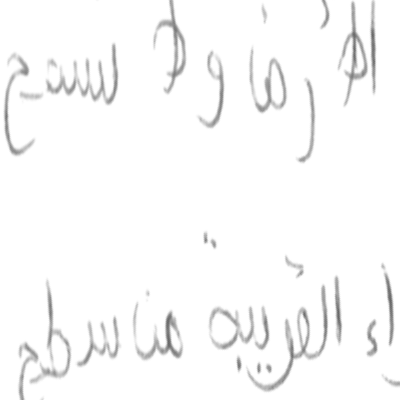 الأرض ولا تسمح
اء القريبة من سطح